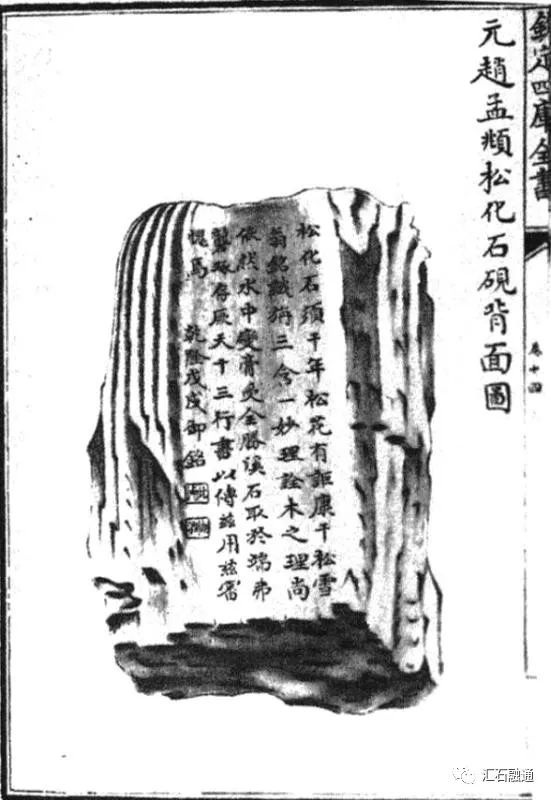 欽定四庫全書
卷十四
元趙孟頫松化石硯背面圖
松化石須千年松花有詎康干松雪
翁銘識稱三含一妙理詮木之理尚
依然水中變全勝谿石取於端弗
琢存厥天十三行書以傳茲用茲
愧焉 乾隆戊戌御銘
汇石融通